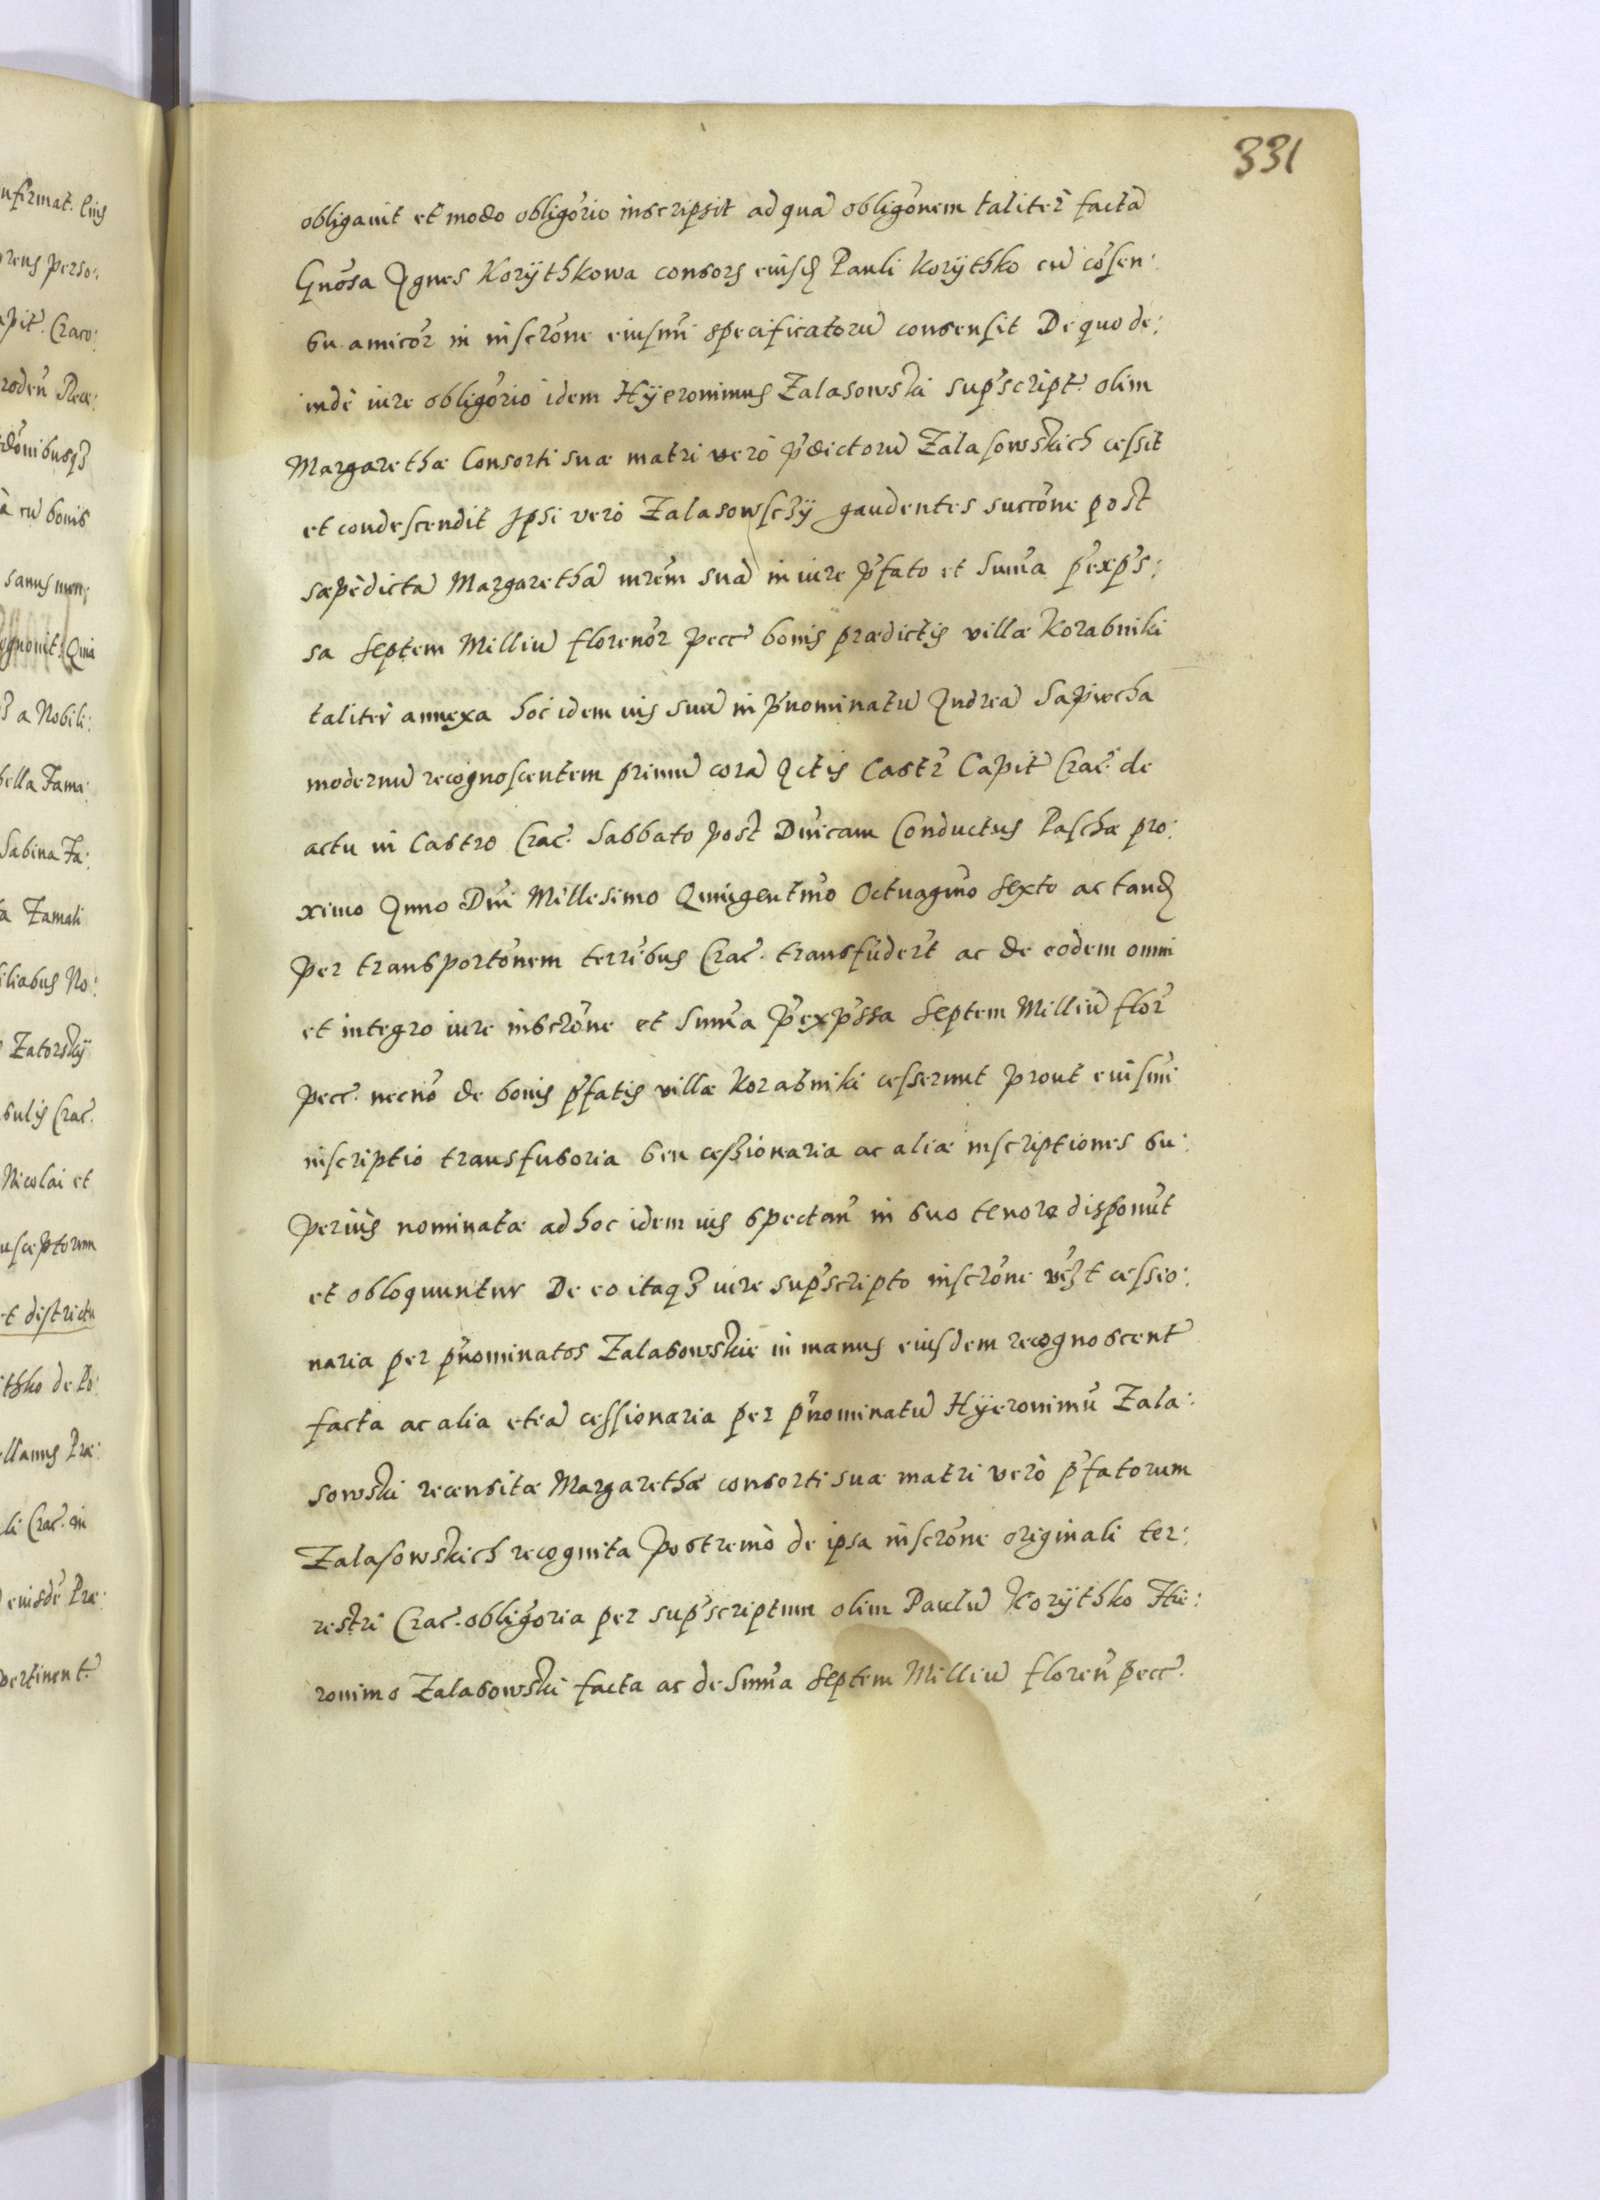 331
obligauit et modo obligorio inscripsit ad qua obligonem taliter facta
Gnosa Agnes Korÿthkowa consors eiusd Pauli Korÿthko cu cosen:
su amicor in inscrone eiusmi specificatoru consensit De quo de:
inde iure obligorio idem Hÿeronimus Zalasowski supscript. olim
Margarethæ Consorti suæ matri verò pdictoru Zalasowskich cessit
et condescendit Ipsi verò Zalasowsczÿ gaudentes succone post
sæpèdicta Margaretha mrem sua in iure pfato et suma pexps:
sa septem Milliu florenor pecc bonis prædictis villæ Korabniki
taliter annexa hoc idem ius suu in pnominatu Andrea Sapiecha
modernu recognoscentem primu cora Actis Castr Capit Crac. de
actu in Castro Crac. Sabbato post Dnicam Conductus Paschæ pro:
ximo Anno Dni Millesimo Quingentmo Octuagmo sexto ac tand
per transportonem terribus Crac. transfudert ac de eodem omni
et integro iure inscrone et suma pexpssa septem Milliu flor
pecc. necno de bonis pfatis villæ Korabniki cesserunt prout eiusmi
inscriptio transfusoria seu cessionaria ac aliæ inscriptiones su:
periùs nominatæ ad hoc idem ius spectan in suo tenore disponut
et obloquuntur De eo itaq iure supscripto inscrone cessio:
naria per pnominatos Zalasowskie in manus eiusdem recognoscent
facta ac alia etia cessionaria per pnominatu Hÿeronimu Zala:
sowski recensitæ Margarethæ consorti suæ matri verò pfatorum
Zalasowskich recognita Postremò de ipsa inscrone originali ter:
restri Crac. obligoria per supscriptum olim Paulu Korÿthko Hie:
ronimo Zalasowski facta ac de suma septem Milliu floren pecc.